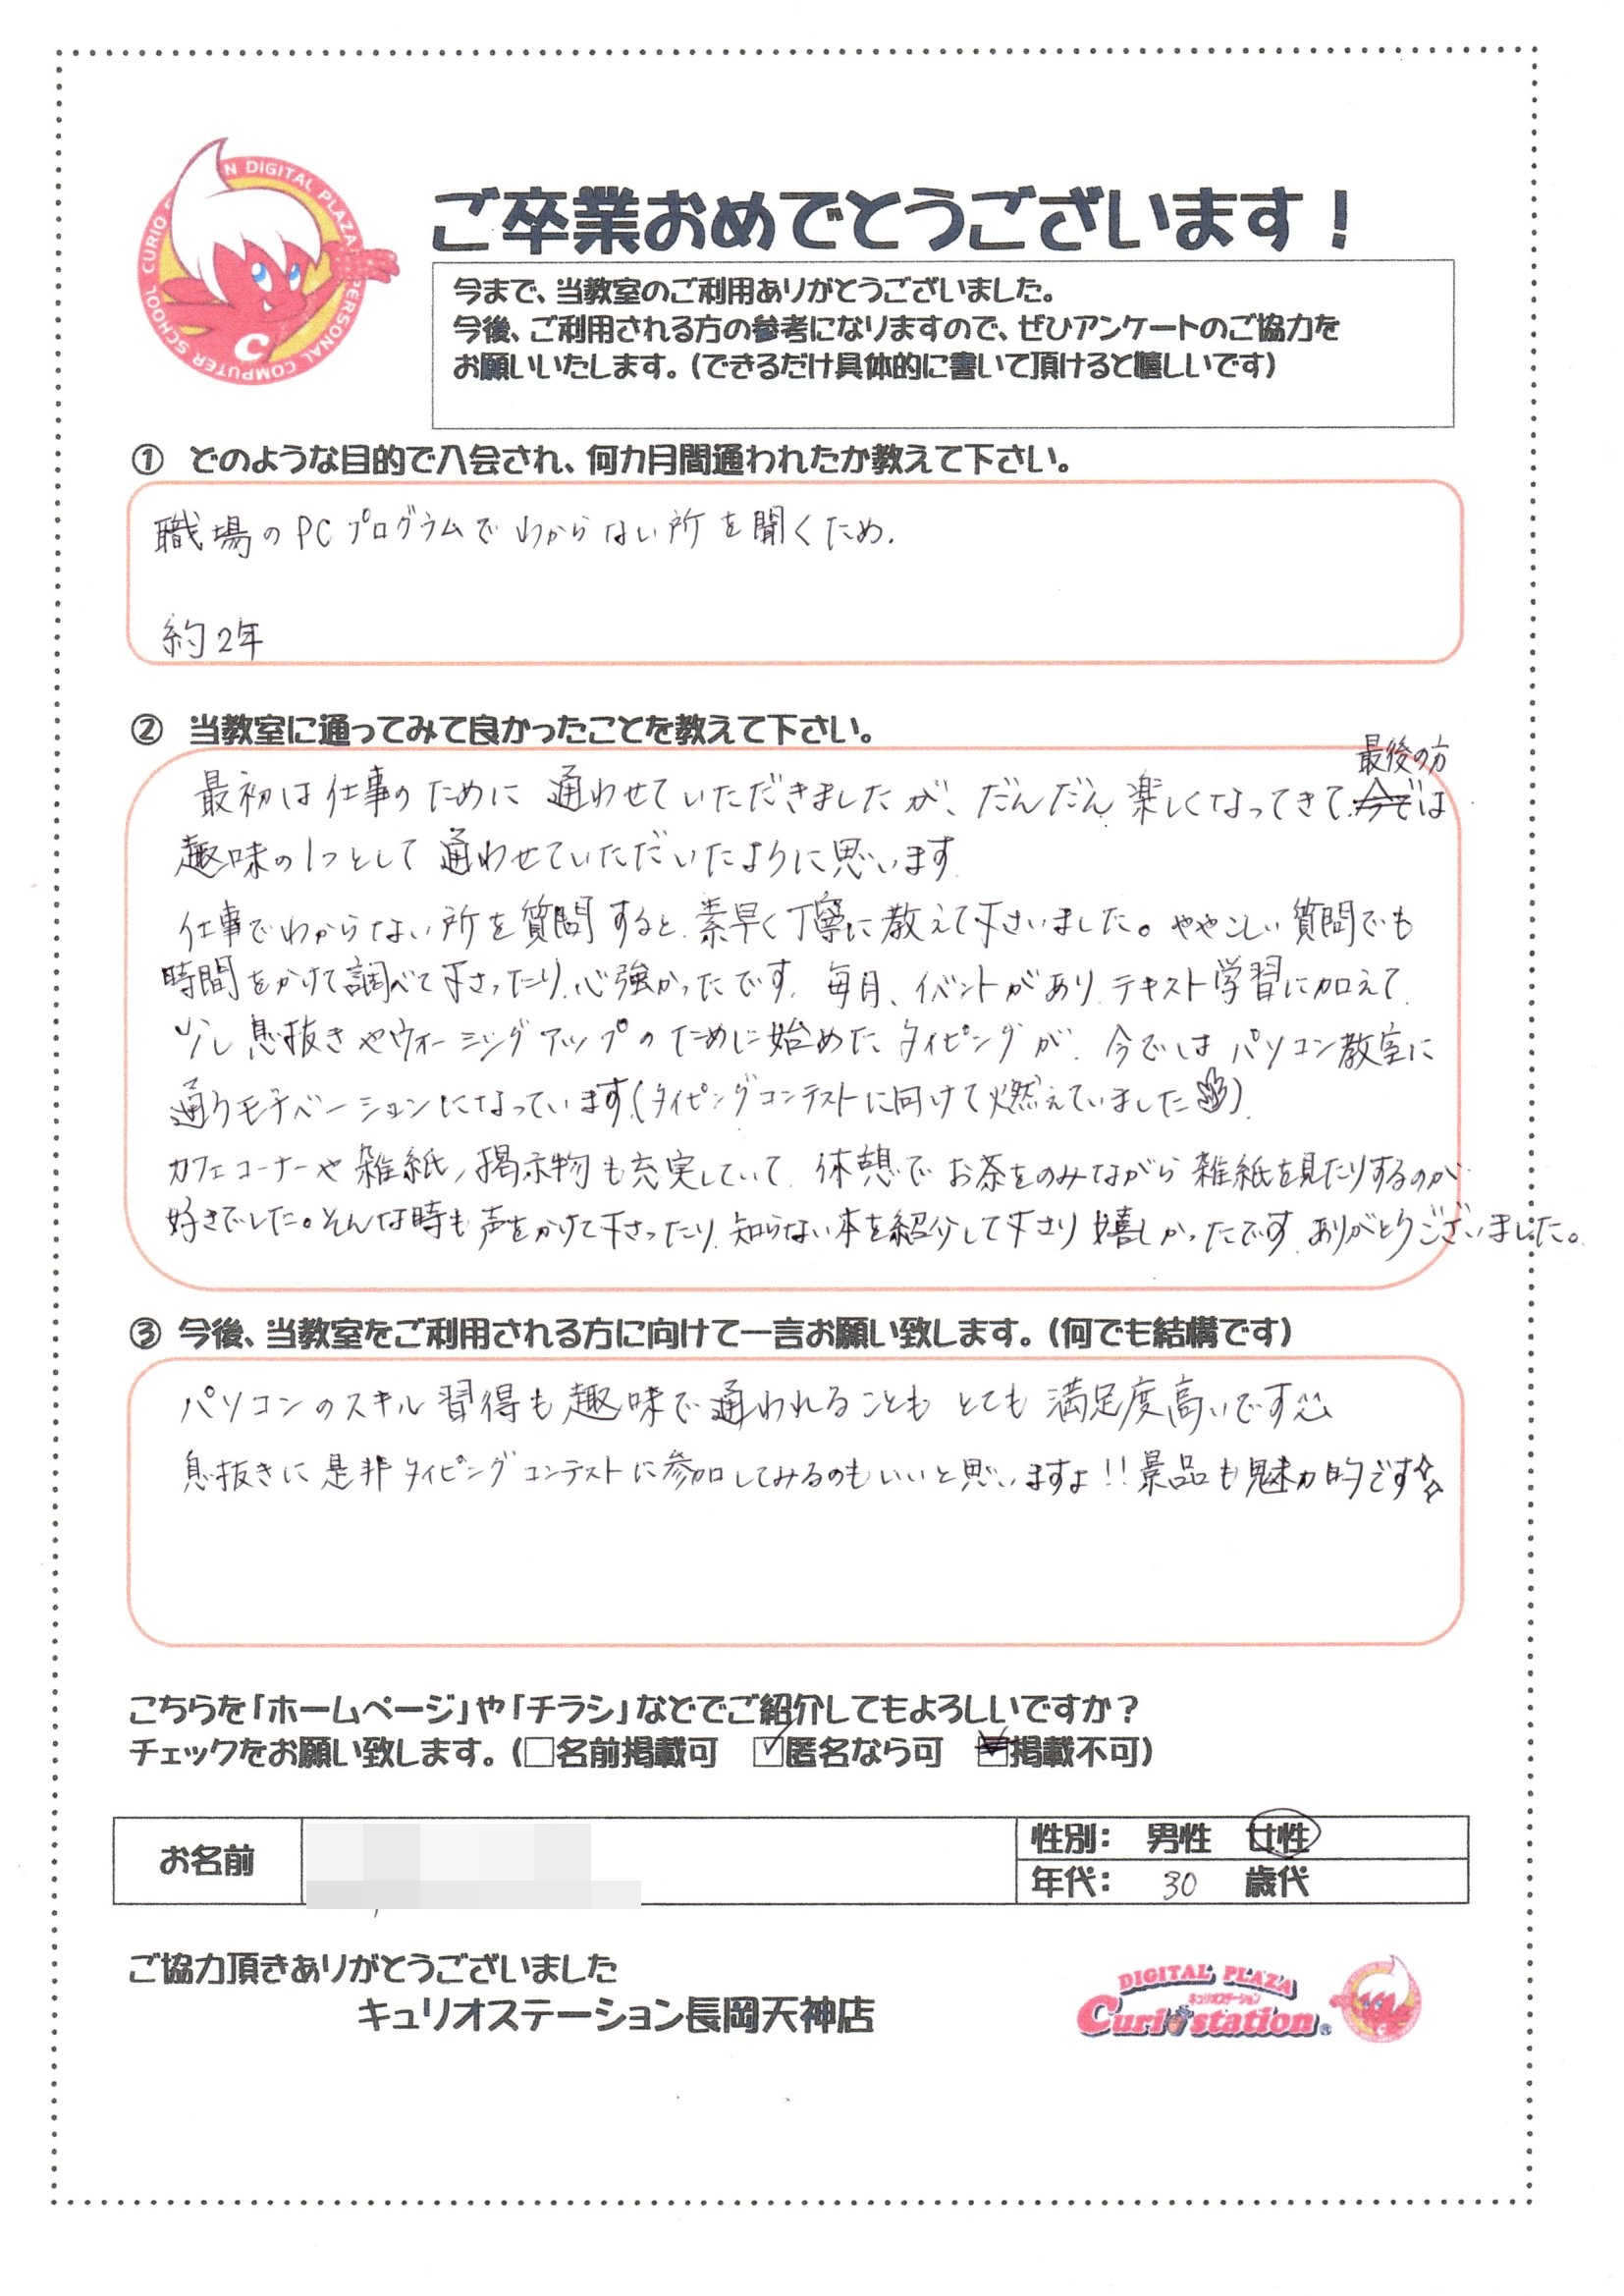 CURIO N DIGITAL PLAZA PERSONAL COMPUTER SCHOOL
C
ご卒業おめでとうございます！
今まで、当教室のご利用ありがとうございました。
今後、ご利用される方の参考になりますので、ぜひアンケートのご協力を
お願いいたします。（できるだけ具体的に書いて頂けると嬉しいです）
① どのような目的で入会され、何カ月間通われたか教えて下さい。
職場のPCプログラムでわからない所を聞くため.
約2年
② 当教室に通ってみて良かったことを教えて下さい。
最後の方
最初は仕事のために通わせていただきましたが、だんだん楽しくなってきて、今では
趣味の1つとして通わせていただいたように思います.
仕事でわからない所を質問すると、素早く丁寧に教えて下さいました。ややこしい質問でも
時間をかけて調べて下さったり、心強かったです. 毎月、イベントがあり、テキスト学習に加えて、
少し息抜きやウォーミングアップのために始めたタイピングが、今ではパソコン教室に
通うモチベーションになっています.(タイピングコンテストに向けて燃えていました).
カフェコーナーや雑紙、掲示物も充実していて、休憩でお茶をのみながら雑紙を見たりするのが
好きでした。そんな時も声をかけて下さったり、知らない本を紹介して下さり嬉しかったです.ありがとうございました。
③ 今後、当教室をご利用される方に向けて一言お願い致します。（何でも結構です）
パソコンのスキル習得も趣味で通われることもとても満足度高いです
息抜きに是非タイピングコンテストに参加してみるのもいいと思いますよ!!景品も魅力的です☆
こちらを「ホームページ」や「チラシ」などでご紹介してもよろしいですか？
チェックをお願い致します。（□名前掲載可 ☑匿名なら可 ☑掲載不可）
お名前
性別： 男性 女性
年代： 30 歳代
ご協力頂きありがとうございました
キュリオステーション長岡天神店
DIGITAL PLAZA
キュリオステーション
Curio station®